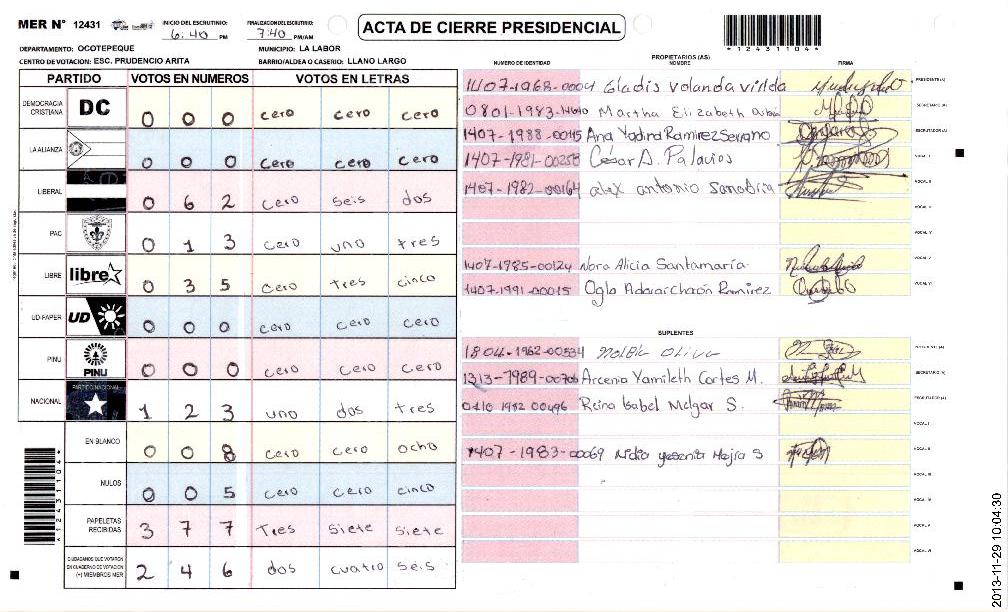 MER N° 12431
INICIO DEL ESCRUTINIO: 6:40 PM
FINALIZACION DEL ESCRUTINIO: 7:40 PM/AM
ACTA DE CIERRE PRESIDENCIAL
*12431104*
DEPARTAMENTO: OCOTEPEQUE
MUNICIPIO: LA LABOR
CENTRO DE VOTACION: ESC. PRUDENCIO ARITA
BARRIO/ALDEA O CASERIO: LLANO LARGO
PARTIDO VOTOS EN NUMEROS VOTOS EN LETRAS
DEMOCRACIA CRISTIANA DC 0 0 0 cero cero cero
LA ALIANZA 0 0 0 cero cero cero
LIBERAL 0 6 2 cero seis dos
PAC 0 1 3 cero uno tres
LIBRE libre 0 3 5 cero tres cinco
UD-FAPER UD 0 0 0 cero cero cero
PINU PINU 0 0 0 cero cero cero
NACIONAL PARTIDO NACIONAL 1 2 3 uno dos tres
EN BLANCO 0 0 8 cero cero ocho
NULOS 0 0 5 cero cero cinco
PAPELETAS RECIBIDAS 3 7 7 Tres siete siete
CIUDADANOS QUE VOTARON EN CUADERNO DE VOTACION (+) MIEMBROS MER 2 4 6 dos cuatro seis
*12431104*
PROPIETARIOS (AS)
NUMERO DE IDENTIDAD NOMBRE FIRMA
1407-1968-0004 Gladis Yolanda PRESIDENTE (A)
0801-1983- Martha Elizabeth SECRETARIO (A)
1407-1988-00115 Ana Yadira Ramirez Serrano ESCRUTADOR (A)
1407-1981-00258 César A. Palacios VOCAL I
1407-1982-00164 alex antonio Sanabria VOCAL II
1407-1985-00124 Nora Alicia Santamaría VOCAL V
1407-1991-00015 Ramirez VOCAL VI
SUPLENTES
1804-1962-00534
1313-1989-00706 Arcenia Yamileth Cortes M. SECRETARIO (A)
0410 1982 00496 Reina Isabel Melgar S. ESCRUTADOR (A)
VOCAL I
1407-1983-00069 Nidia yesenia Mejia S VOCAL II
VOCAL III
VOCAL IV
VOCAL V
VOCAL VI
2013-11-29 10:04:30